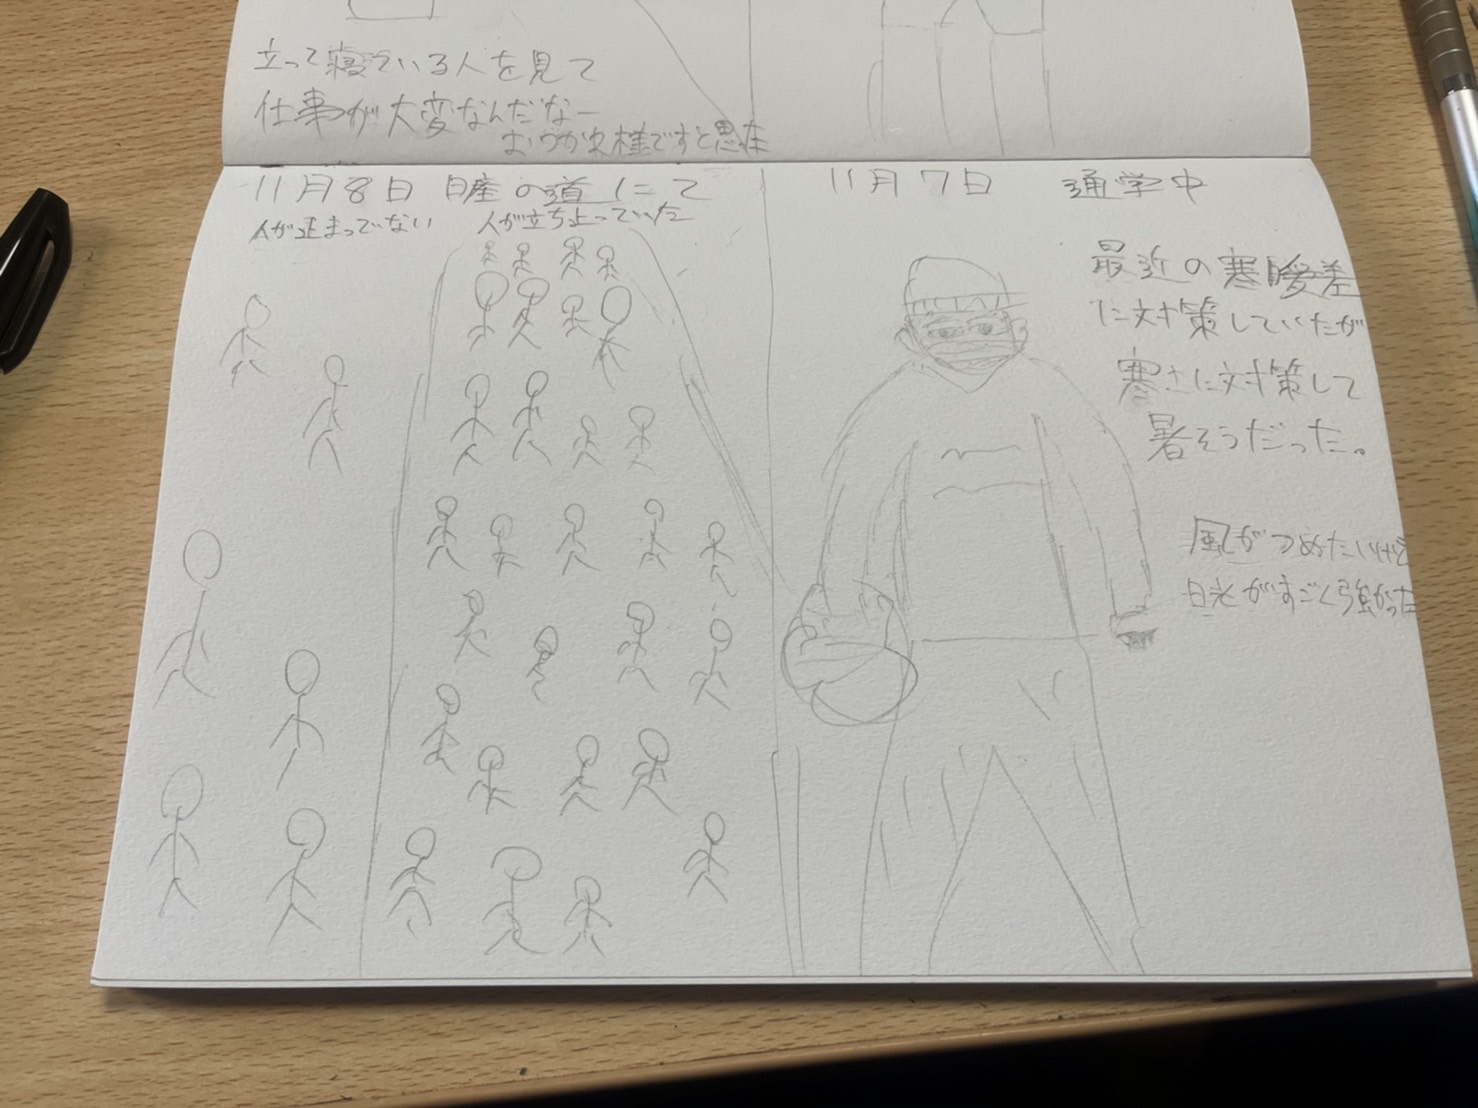 立って寝ている人を見て
仕事が大変なんだなー
おつかれ様ですと思った
11月8日 日産の道にて
人が止まってない 人が立ち止っていた
11月7日 通学中
最近の寒暖差
に対策していたが
寒さに対策して
暑そうだった。
風がつめたいけど
日光がすごく強かった